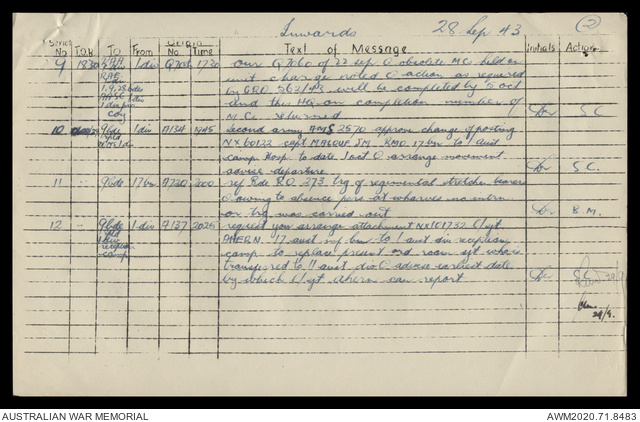 Inwards 28 Sep 43 (2)
Serial No T.O.R. To From Origin No. Time Text of Message Initials Action
9 1830 1 div 1730 our Q7060 of 22 sep O obsolete MC held on
RAE unit charge noted O action as required
1, 9, 29 bdes by GRO 262/43 will be completed by 5 oct
AASC 1 div and this HQ on completion number of
1 div pro coy MC returned S C
10 9 bde 1 div A134 1945 second army AMS 2570 approve change of posting
NX60122 capt JM. RMO. 17 bn to 1 aust
camp hosp to date 1 oct O arrange movement
advise departure S.C.
11 9 bde 17 bn A720 2000 ref Bde RO 273 trg of regimental stretcher bearers
O owing to absence pers at wharves no
or trg was carried out B.M.
12 9 bde 1 div A137 2025 request you arrange attachment NX101732 L/sgt
1 div AHERN. 17 aust inf bn to 1 aust div reception
reception camp to replace present ord room sgt who is
camp transferred to 11 aust div O advise earliest date
by which L/sgt Ahern can report S.C. 29/9
29/9.
AUSTRALIAN WAR MEMORIAL AWM2020.71.8483